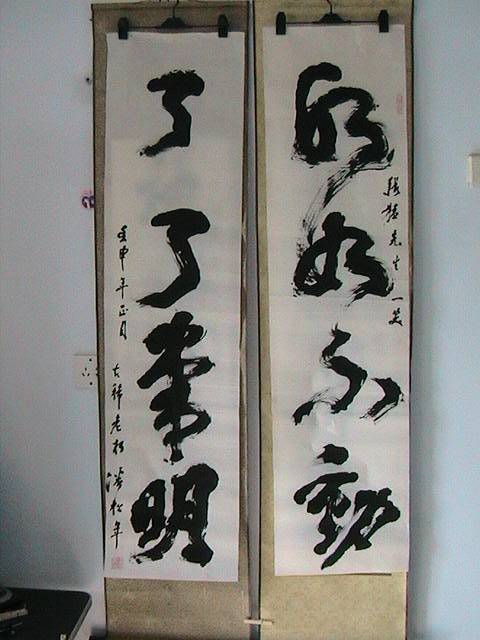 先生一笑
如如不動
了了常明
壬申年正月 古稀老朽 松年